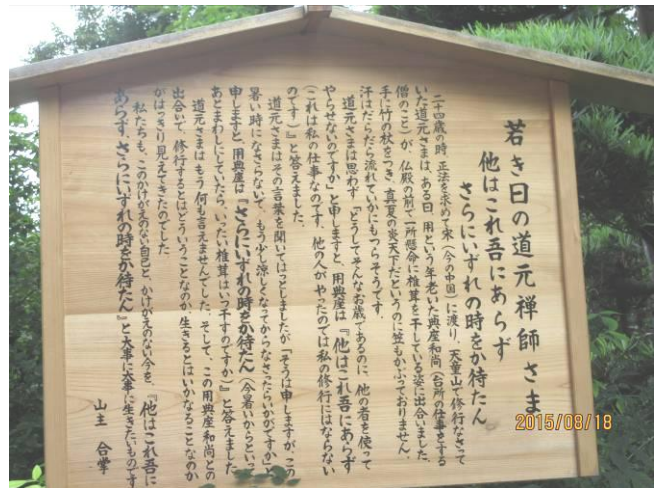 若き日の道元禅師さま
他はこれ吾にあらず
さらにいずれの時をか待たん
二十四歳の時 正法を求めて宋(今の中国)に渡り、天童山で修行なさって
いた道元さまは、ある日、用という年老いた典座和尚(台所の仕事をする
僧のこと)が、仏殿の前で一所懸命に椎茸を干している姿に出合いました。
手に竹の杖をつき、真夏の炎天下だというのに笠もかぶっておりません。
汗はだらだら流れていかにもつらそうです。
道元さまは思わず「どうしてそんなお歳であるのに、他の者を使って
やらせないのですか」と申しますと、用典座は『他はこれ吾にあらず
(これは私の仕事なのです。他の人がやったのでは私の修行にはならない
のです)』と答えました。
道元さまはその言葉を聞いてはっとしましたが「そうは申しますが、この
暑い時になさらないで、もう少し涼しくなってからなさったらいかがですか」と
申しますと、用典座は『さらにいずれの時をか待たん(今暑いからといって
あとまわしにしていたら、いったい椎茸はいつ干すのですか)』と答えました
道元さまはもう何も言えませんでした。そして、この用典座和尚との
出合いで、修行するとはどういうことなのか、生きるとはいかなることなのか
がはっきり見えてきたのでした
私たちも、このかけがえのない自己と、かけがえのない今を、『他はこれ吾に
あらず、さらにいずれの時をか待たん』と大事に大事に生きたいものです
山主 合掌
2015/08/18